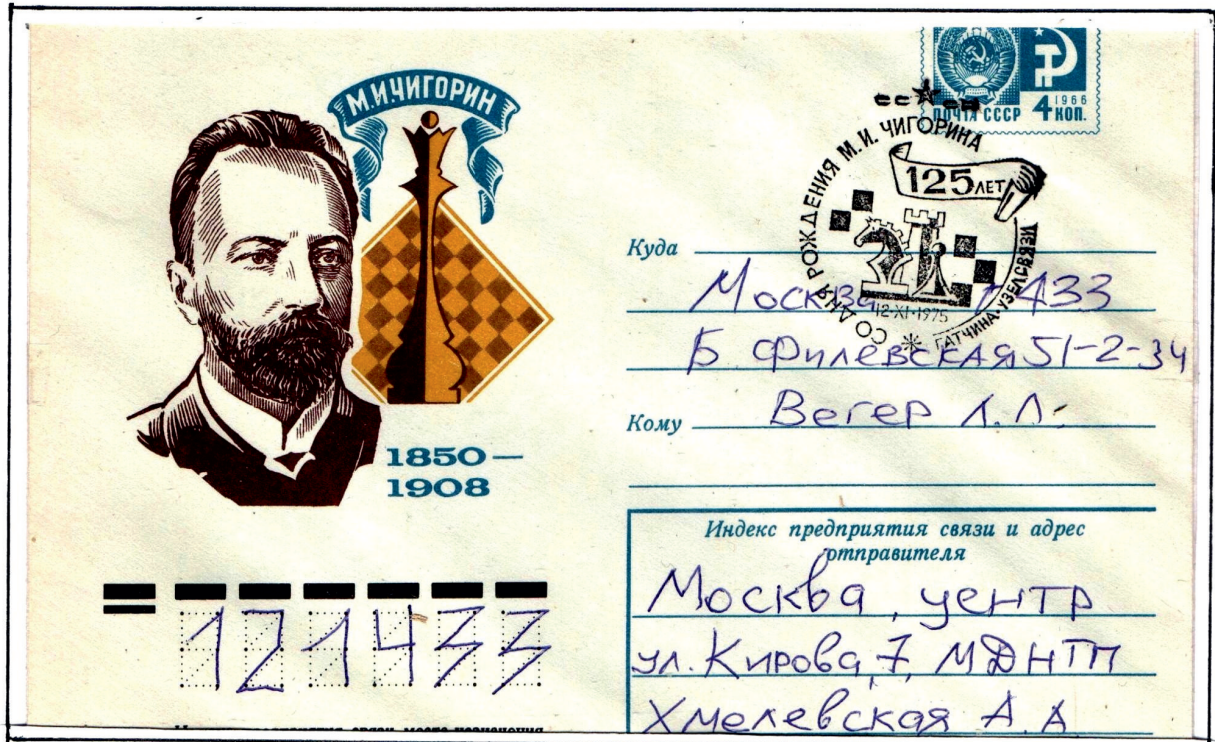 М.И.ЧИГОРИН
1850—
1908
ПОЧТА СССР 4 1966 КОП.
СО ДНЯ РОЖДЕНИЯ М. И. ЧИГОРИНА
125 ЛЕТ
12·XI·1975
ГАТЧИНА·УЗЕЛ СВЯЗИ
Куда
Москва 433
Б Филевская 51-2-34
Кому Вегер Л.Л.
Индекс предприятия связи и адрес
отправителя
Москва, центр
ул. Кирова, 7, МДНТП
Хмелевская А. А
121433